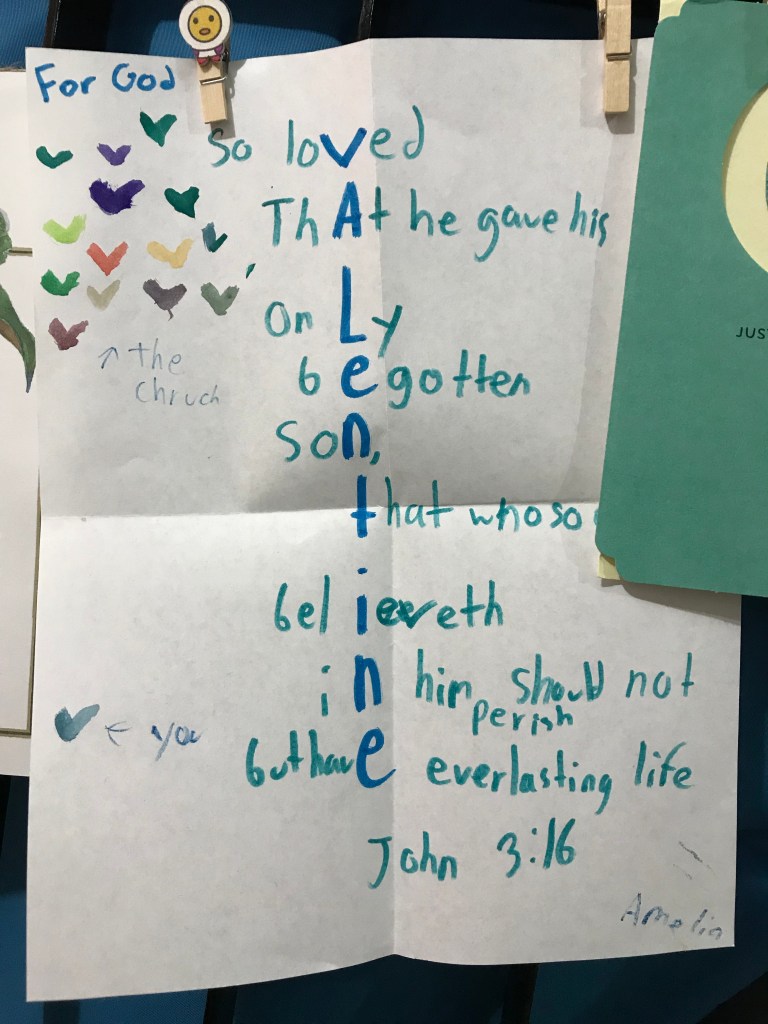 For God
so loved
ThAt he gave his
on Ly
begotten
son,
that whoso
↑ the
chruch
believeth
in him should not
perish
← you
but have everlasting life
John 3:16
Amelia
JUS